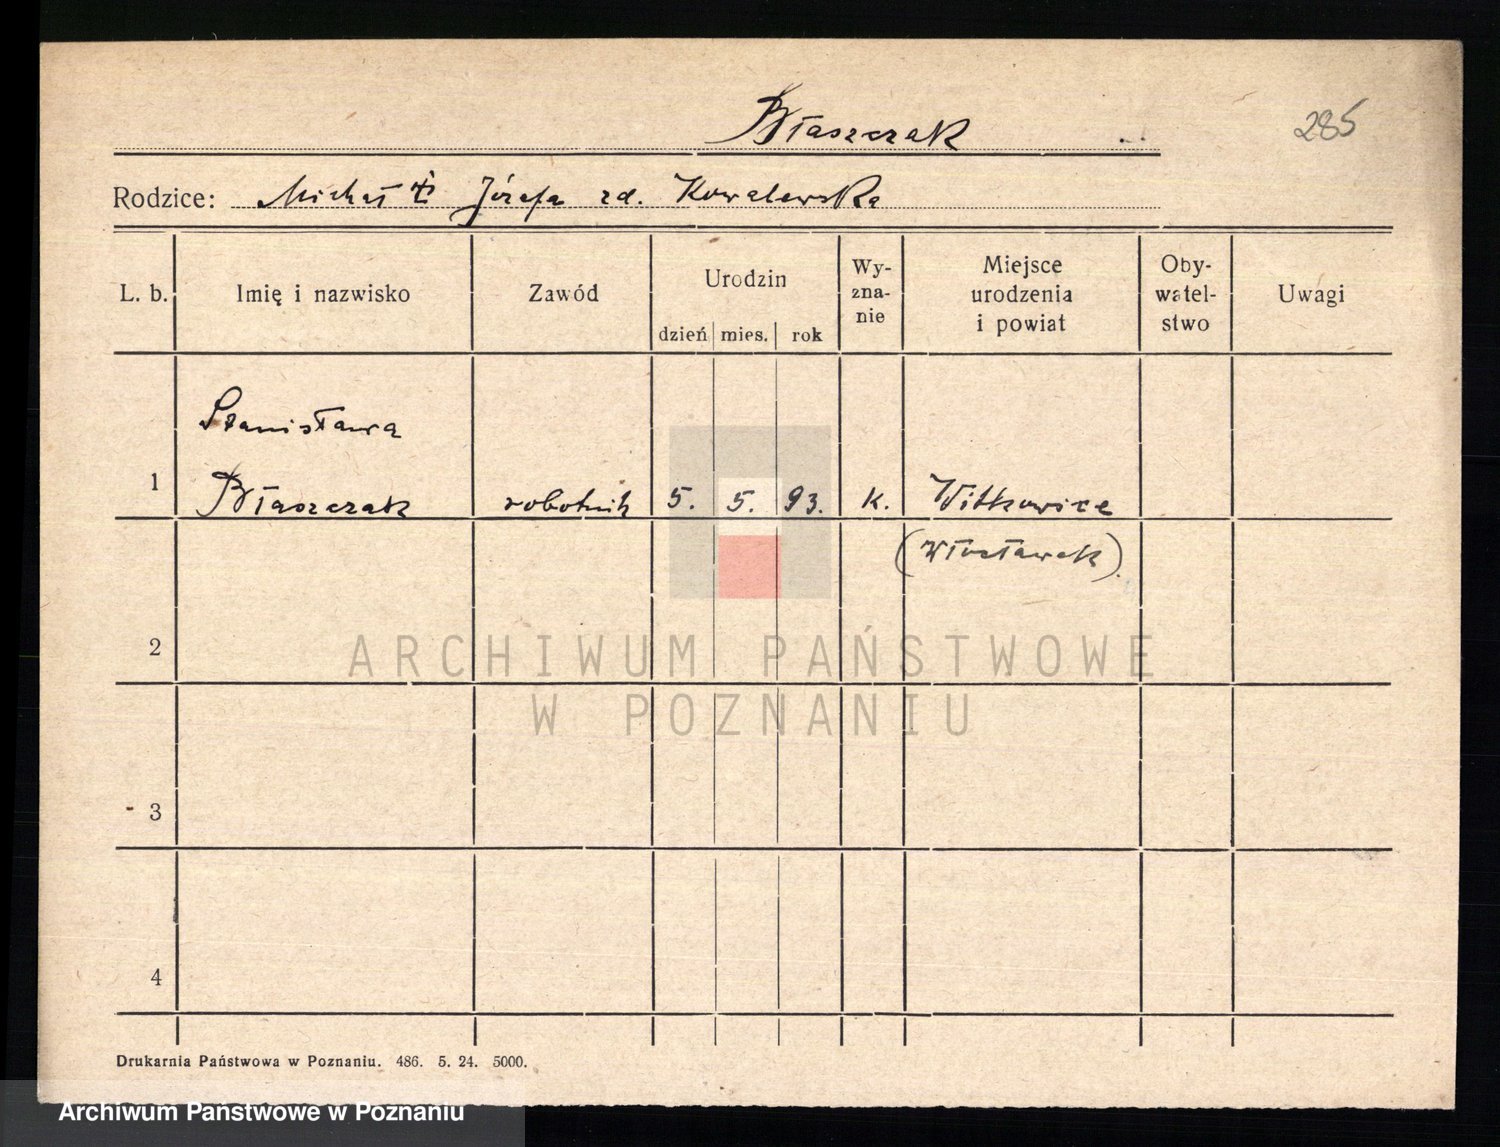 Błaszczak
285
Rodzice: Michał Józefa zd. Kowalewska
L. b.
Imię i nazwisko
Zawód
Urodzin
dzień mies. rok
Wy-
zna-
nie
Miejsce
urodzenia
i powiat
Oby-
watel-
stwo
Uwagi
Stanisława
1 Błaszczak robotnik 5. 5. 93. k. Witkowice
(Włocławek).
2
ARCHIWUM PAŃSTWOWE
W POZNANIU
3
4
Drukarnia Państwowa w Poznaniu. 486. 5. 24. 5000.
Archiwum Panstwowe w Poznaniu